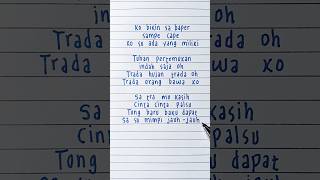 Ko bikin sa baper
sampe cape
Ko su ada yang miliki
Tuhan pertemukan
indah saja oh
Trada hujan trada oh
Trada orang bawa ko
Sa tra mo kasih
Cinta cinta palsu
Tong baru baku dapat
Sa su mimpi jauh-jauh